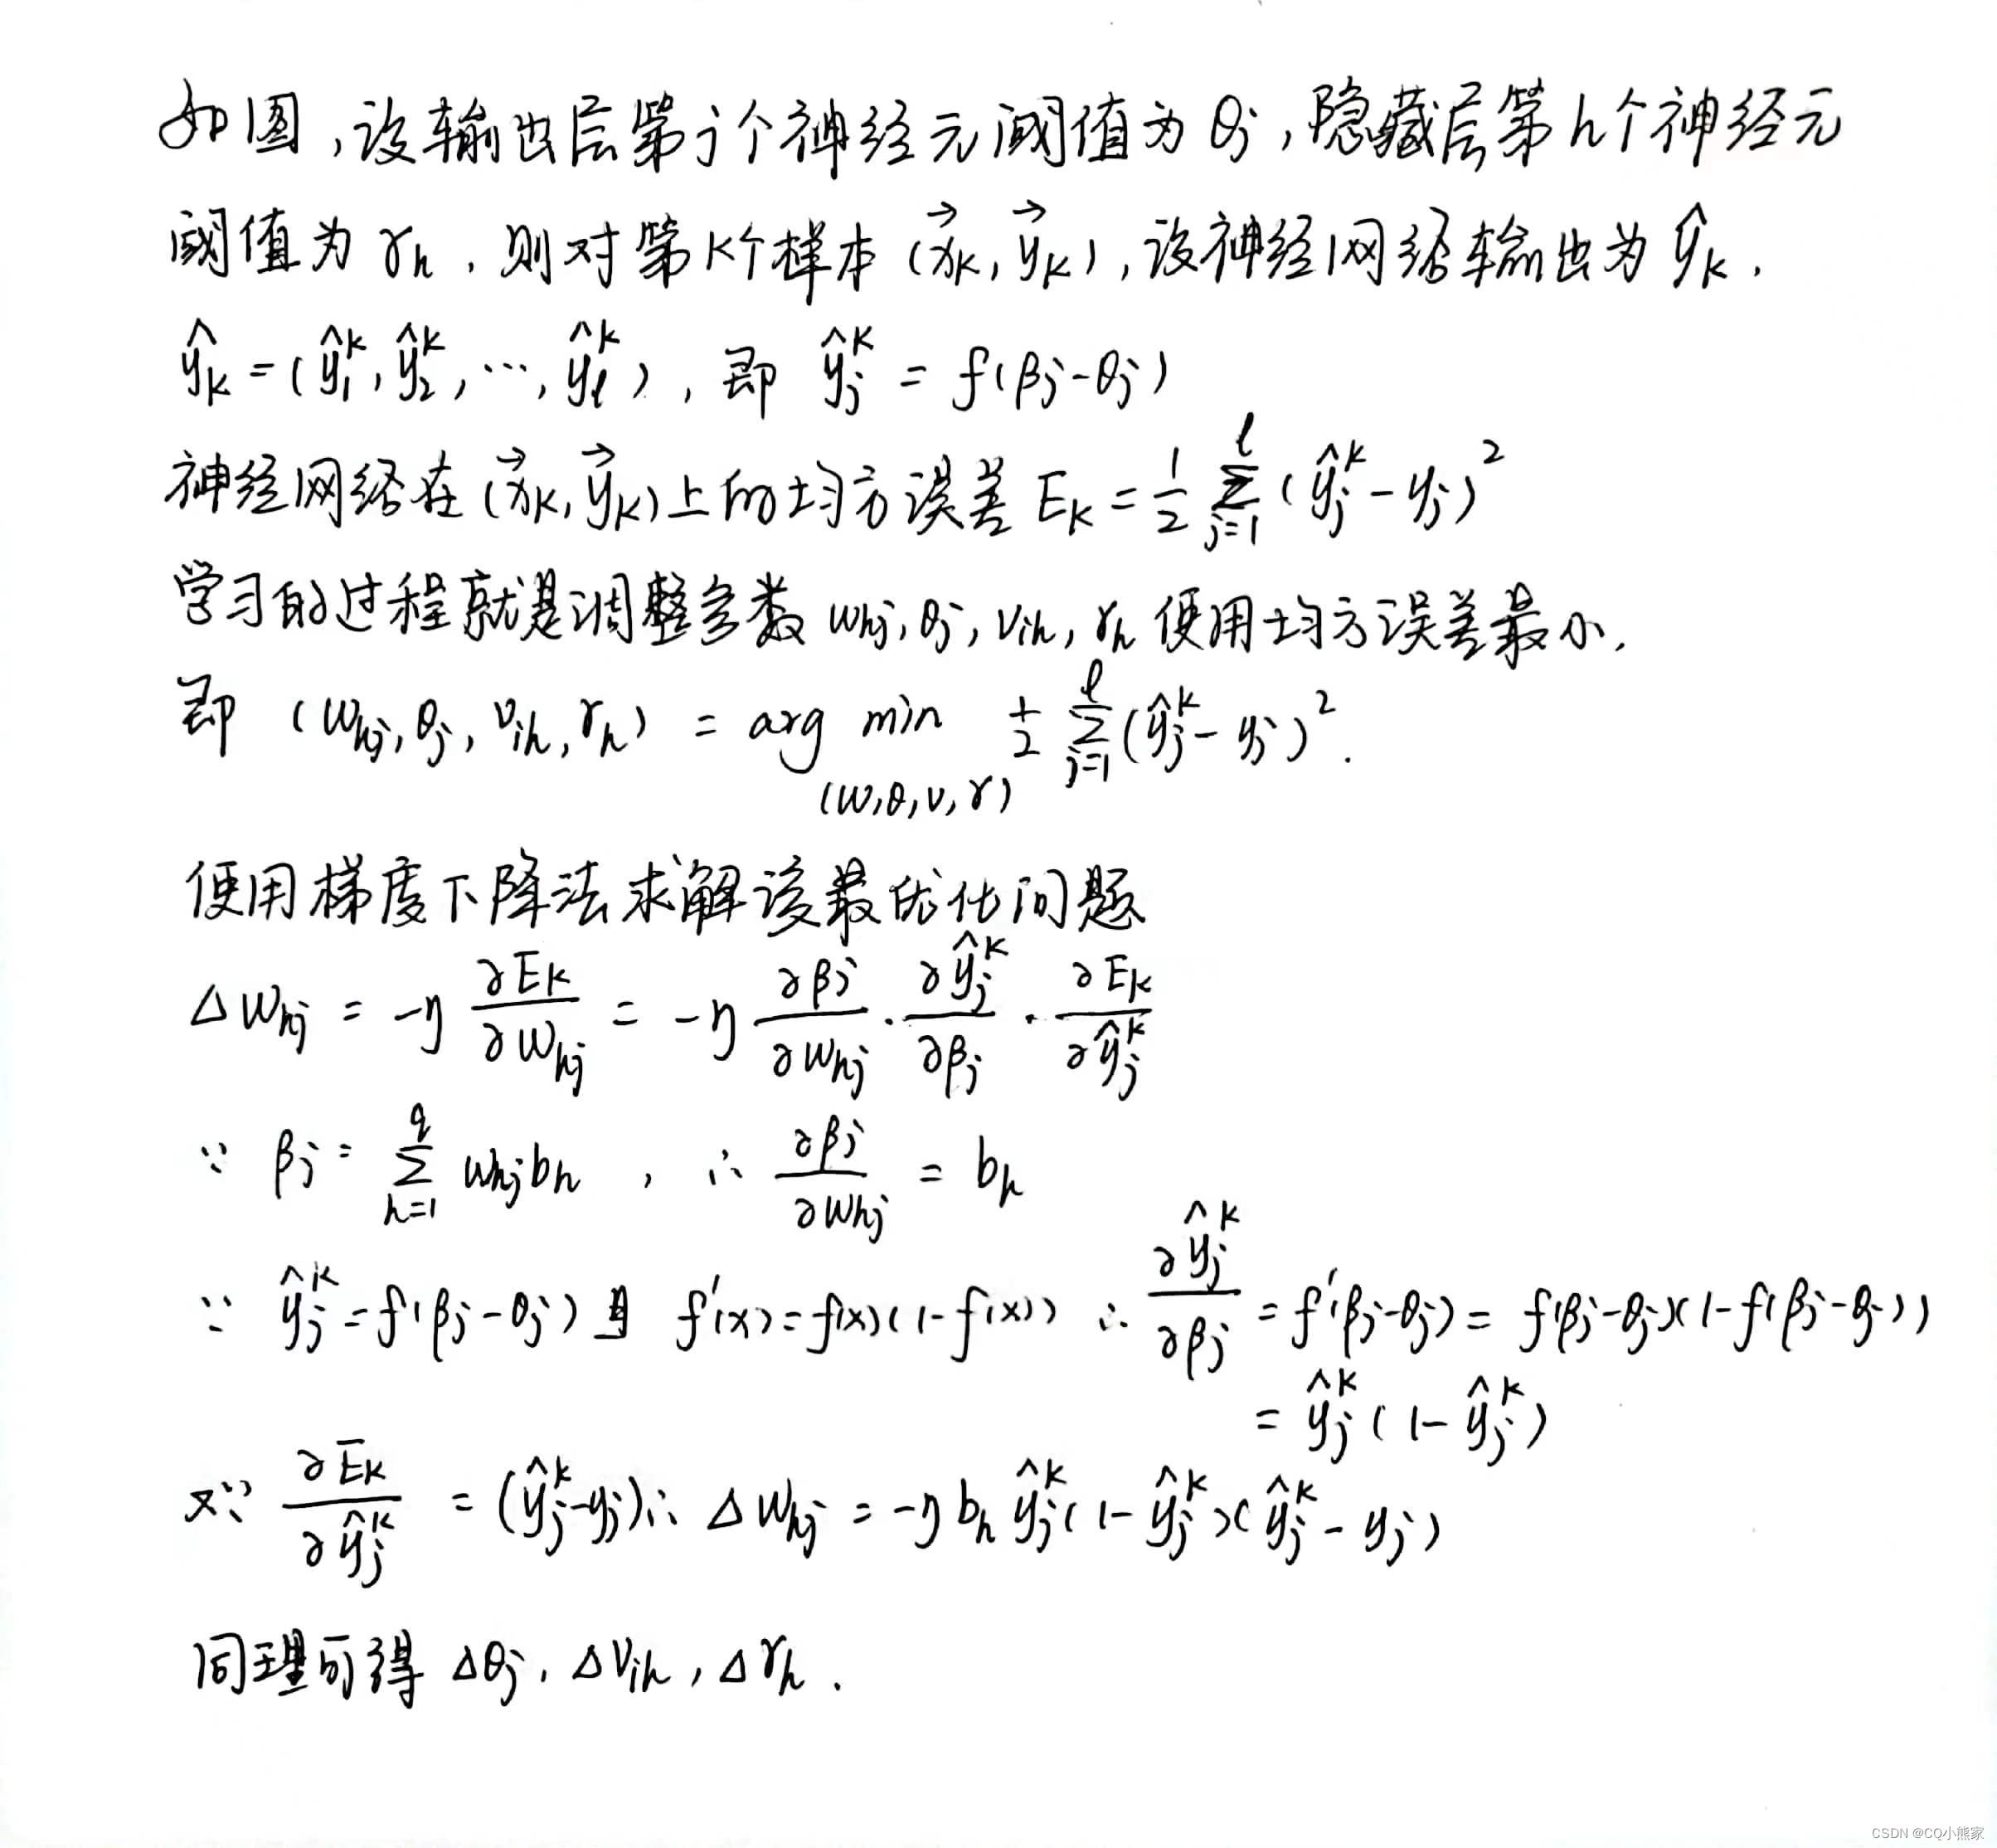 如图,设输出层第j个神经元阈值为θj,隐藏层第h个神经元
阈值为γh,则对第k个样本(x⃗k,y⃗k),该神经网络输出为ŷk,
ŷk=(ŷ₁ᵏ,ŷ₂ᵏ,…,ŷₗᵏ),即 ŷⱼᵏ = f(βj-θj)
神经网络在(x⃗k,y⃗k)上的均方误差Ek = 1/2 Σ_{j=1}^{l} (ŷⱼᵏ - yj)²
学习的过程就是调整参数 whj,θj,vih,γh 使用均方误差最小.
即 (whj,θj,vih,γh) = arg min_{(w,θ,v,γ)} 1/2 Σ_{j=1}^{l} (ŷⱼᵏ - yj)².
使用梯度下降法求解该最优化问题
Δwhj = -η ∂Ek/∂whj = -η ∂βj/∂whj · ∂ŷⱼᵏ/∂βj · ∂Ek/∂ŷⱼᵏ
∵ βj = Σ_{h=1}^{q} whj bh , ∴ ∂βj/∂whj = bh
∵ ŷⱼᵏ = f(βj-θj) 且 f'(x)=f(x)(1-f(x)) ∴ ∂ŷⱼᵏ/∂βj = f'(βj-θj) = f(βj-θj)(1-f(βj-θj))
= ŷⱼᵏ(1-ŷⱼᵏ)
又∵ ∂Ek/∂ŷⱼᵏ = (ŷⱼᵏ-yj) ∴ Δwhj = -η bh ŷⱼᵏ(1-ŷⱼᵏ)(ŷⱼᵏ-yj)
同理可得 Δθj, Δvih, Δγh.
CSDN @CQ小熊家